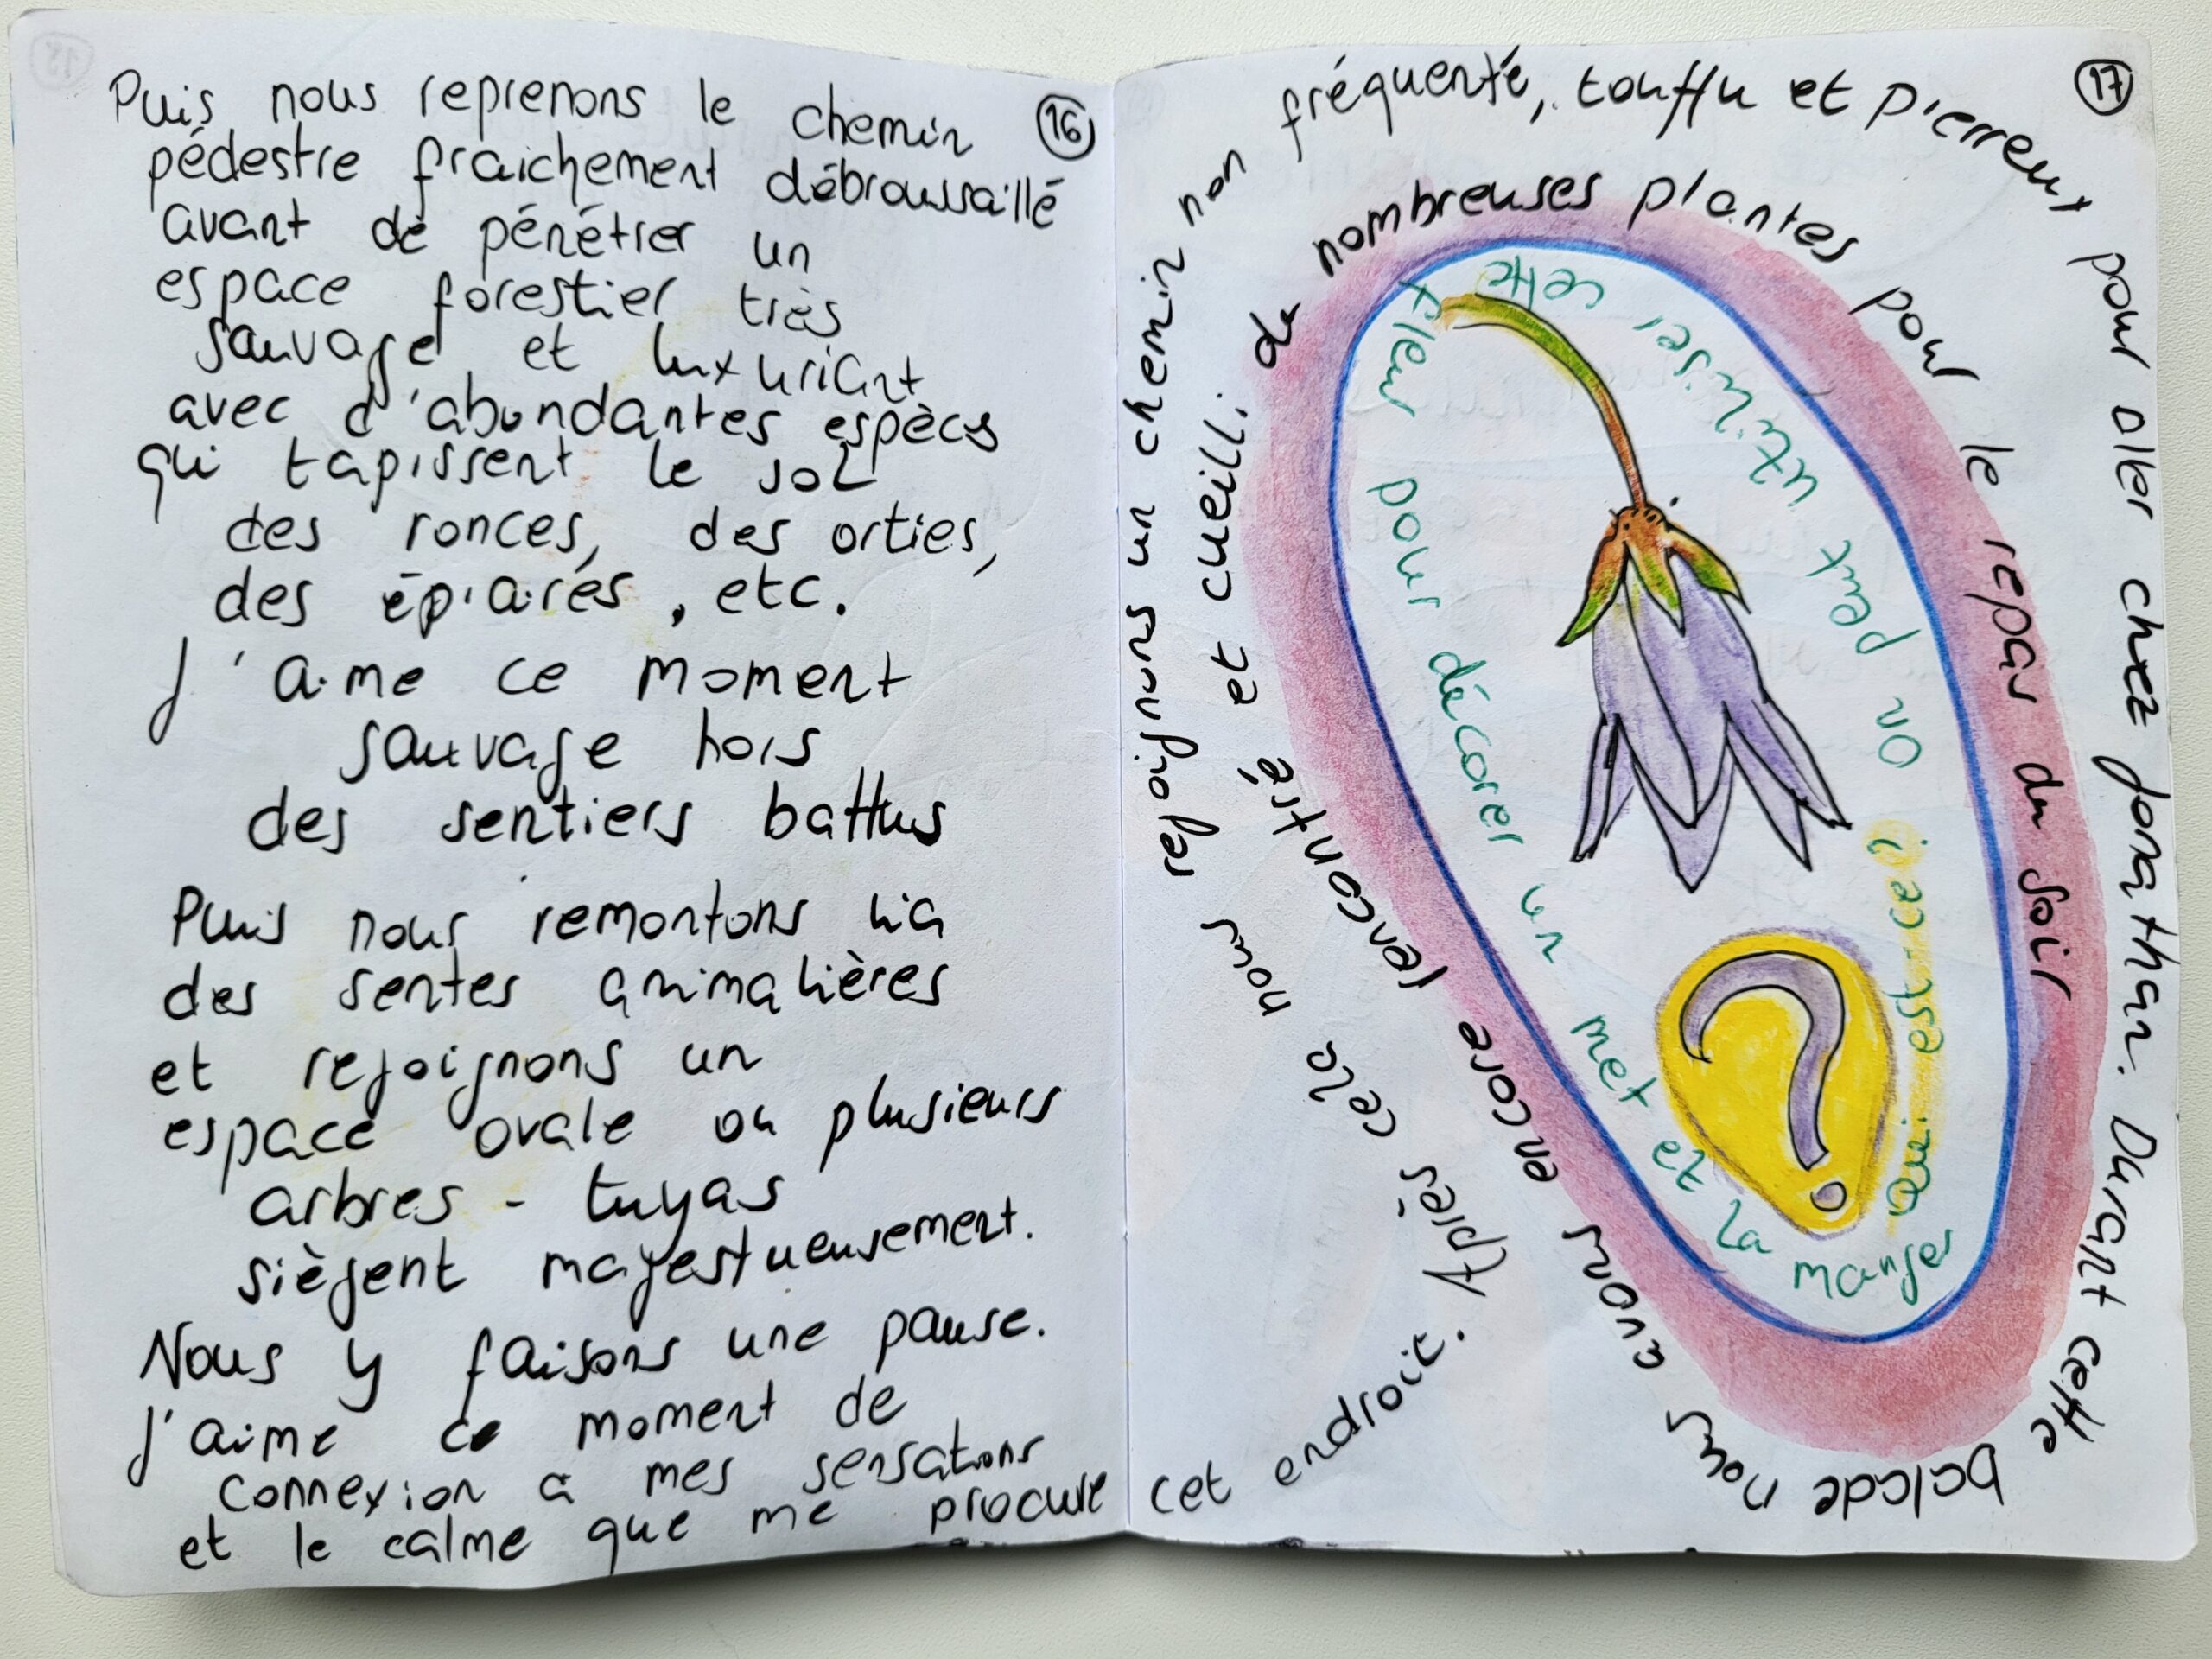 16
Puis nous reprenons le chemin
pédestre fraichement débroussaillé
avant de pénétrer un
espace forestier très
sauvage et luxuriant
avec d'abondantes espèces
qui tapissent le sol
des ronces, des orties,
des épiaires, etc.
J'aime ce moment
sauvage hors
des sentiers battus
Puis nous remontons via
des sentes animalières
et rejoignons un
espace ovale ou plusieurs
arbres - tuyas
siègent majestueusement.
Nous y faisons une pause.
J'aime ce moment de
connexion à mes sensations
et le calme que me procure
17
cet endroit. Après cela nous rejoignons un chemin non fréquenté, touffu et pierreux pour aller chez Jonathan. Durant cette balade nous
avons encore rencontré et cueilli de nombreuses plantes pour le repas du soir
Qui est-ce? On peut utiliser cette fleur pour décorer un met et la manger
?